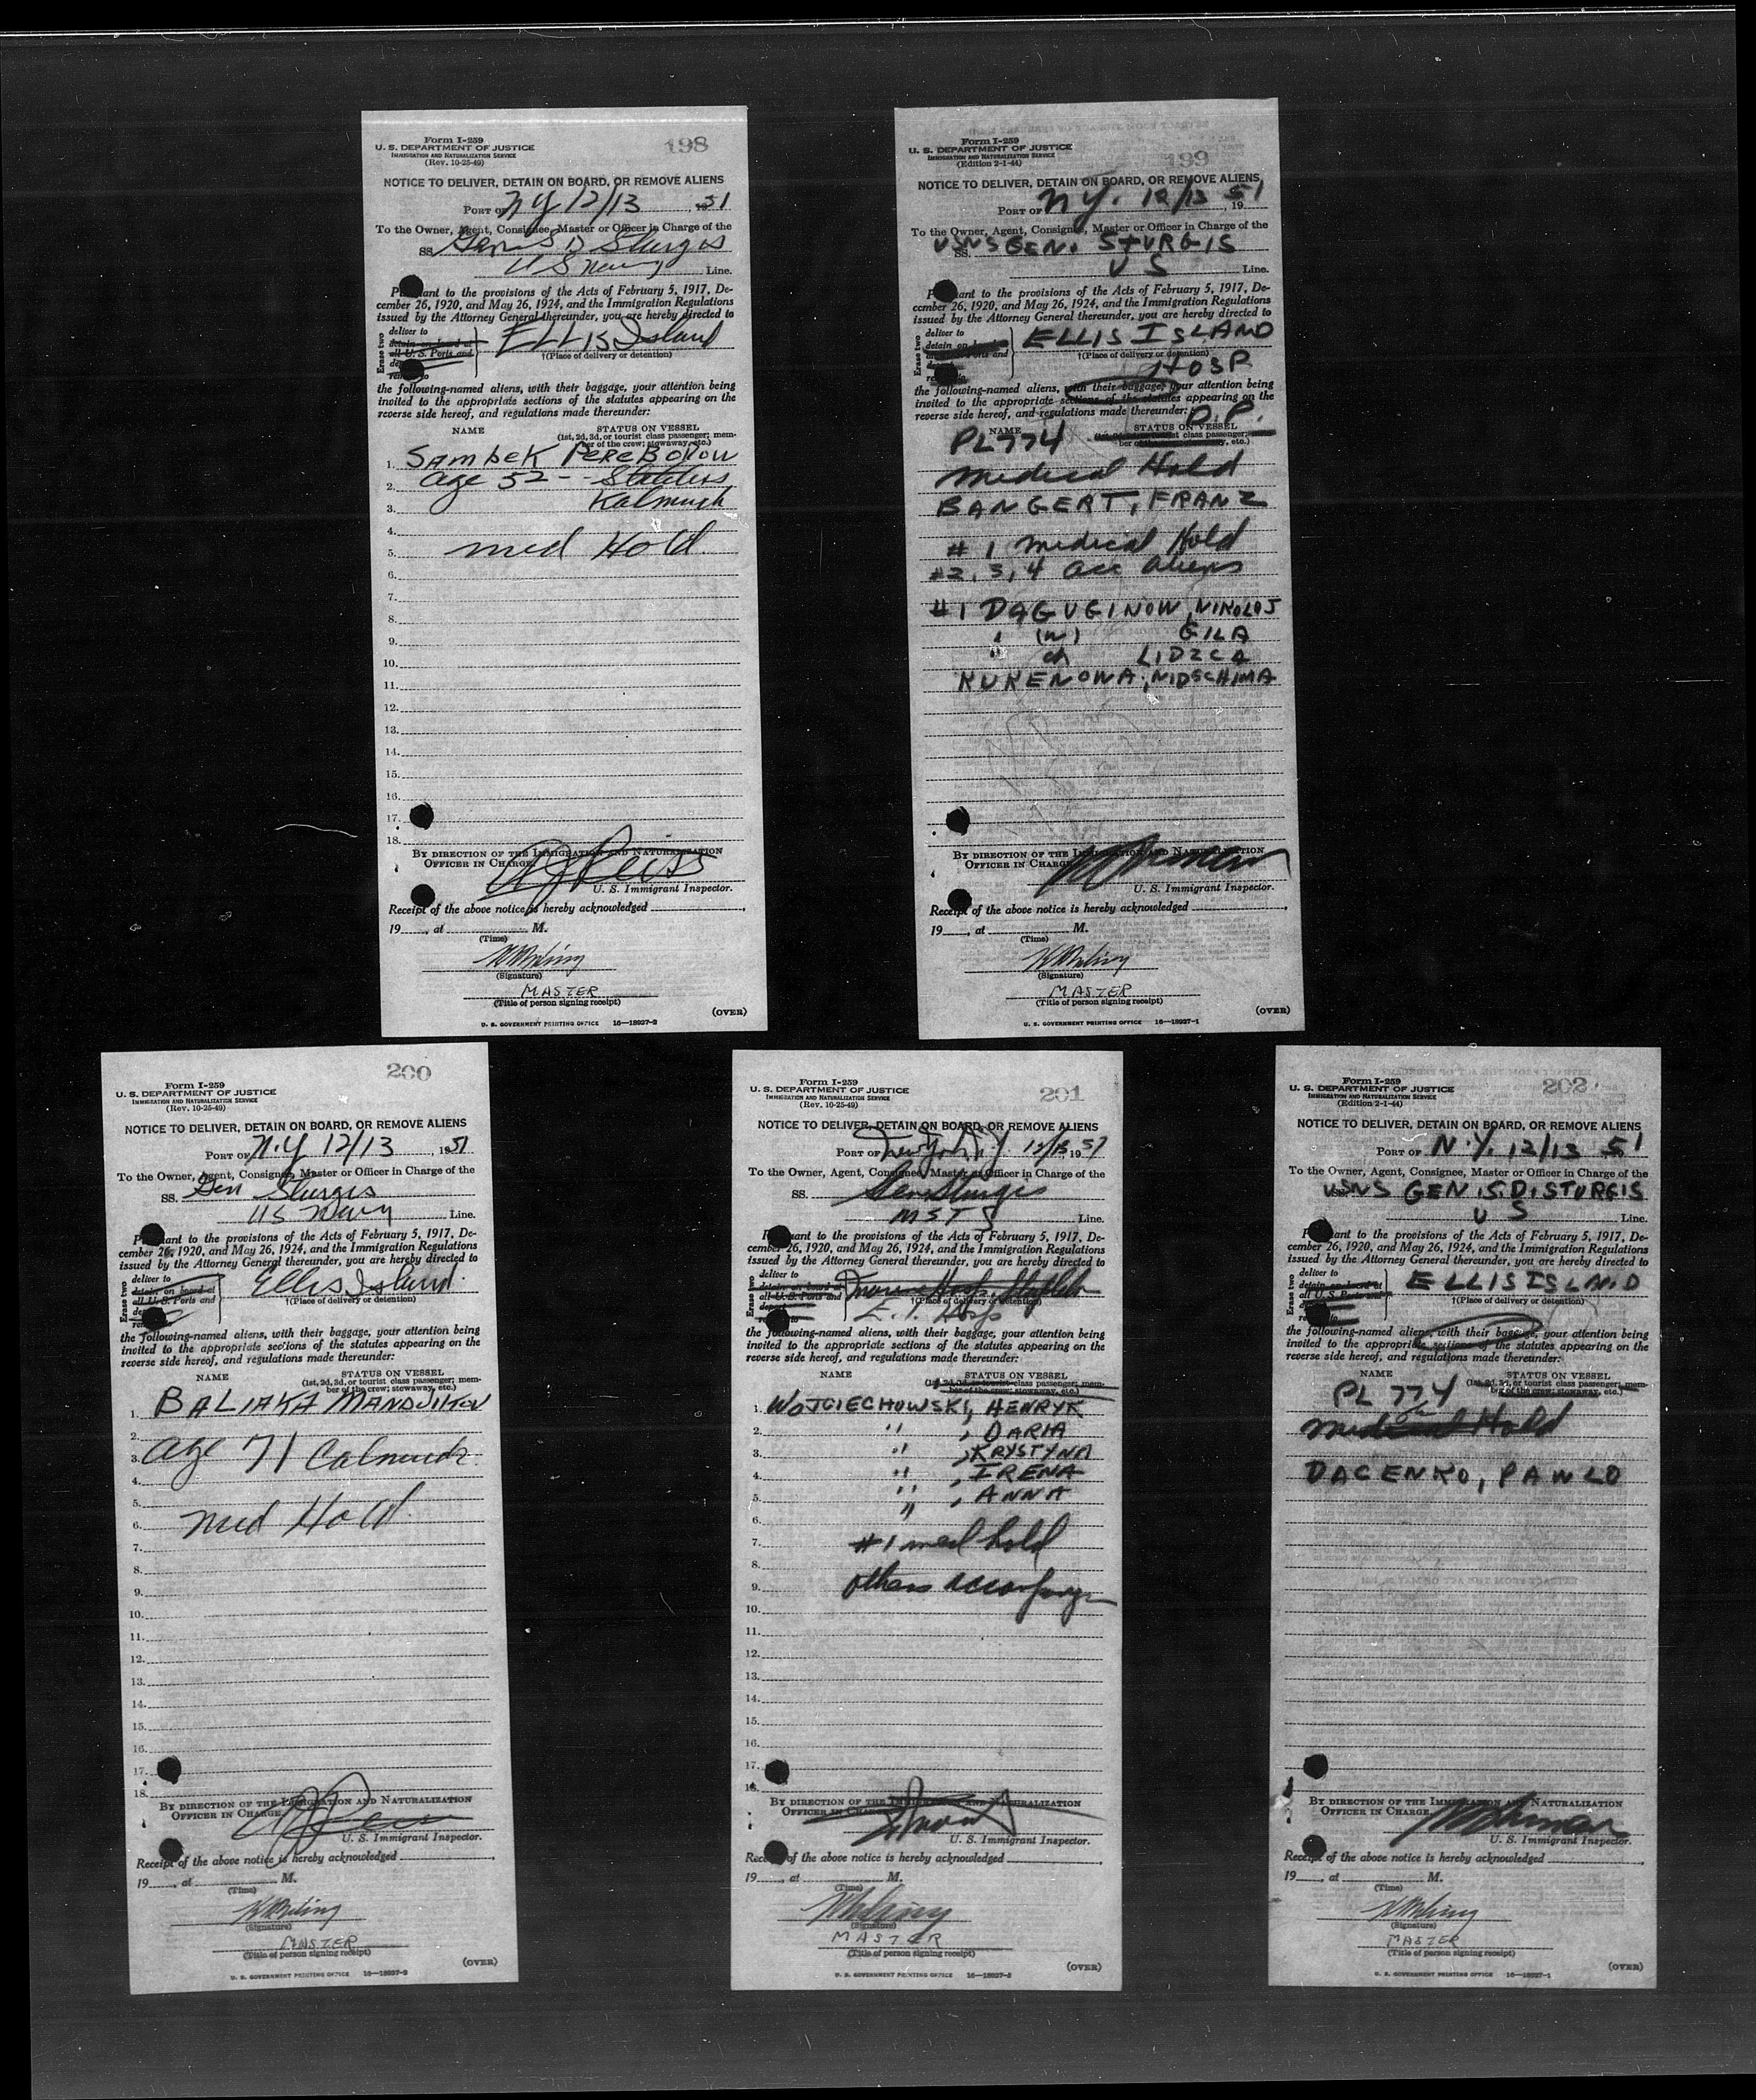 198
Form I-259
U. S. DEPARTMENT OF JUSTICE
IMMIGRATION AND NATURALIZATION SERVICE
(Rev. 10-25-49)
NOTICE TO DELIVER, DETAIN ON BOARD, OR REMOVE ALIENS
PORT OF NY 12/13, 51
To the Owner, Agent, Consignee, Master or Officer in Charge of the
SS. Sturgis
U S Navy Line.
Pursuant to the provisions of the Acts of February 5, 1917, De-
cember 26, 1920, and May 26, 1924, and the Immigration Regulations
issued by the Attorney General thereunder, you are hereby directed to
Erase two
deliver to
detain on board at
all U. S. Ports and
ELLIS Island
†(Place of delivery or detention)
the following-named aliens, with their baggage, your attention being
invited to the appropriate sections of the statutes appearing on the
reverse side hereof, and regulations made thereunder:
NAME STATUS ON VESSEL
(1st, 2d, 3d, or tourist class passenger; mem-
ber of the crew; stowaway, etc.)
1. SAMbEK PEREBOROW
2. Age 52 -- Stateless
3. Kalmuck
4.
5. med Hold.
6.
7.
8.
9.
10.
11.
12.
13.
14.
15.
16.
17.
18.
BY DIRECTION OF THE IMMIGRATION AND NATURALIZATION
OFFICER IN CHARGE. Reiss
U. S. Immigrant Inspector.
Receipt of the above notice is hereby acknowledged
19, at M.
(Time)
(Signature)
MASTER
(Title of person signing receipt)
(OVER)
U. S. GOVERNMENT PRINTING OFFICE 16—18927-2
199
Form I-259
U. S. DEPARTMENT OF JUSTICE
IMMIGRATION AND NATURALIZATION SERVICE
(Edition 2-1-44)
NOTICE TO DELIVER, DETAIN ON BOARD, OR REMOVE ALIENS
PORT OF N.Y. 12/13, 19 51
To the Owner, Agent, Consignee, Master or Officer in Charge of the
SS. USNS GEN. STURGIS
U S Line.
Pursuant to the provisions of the Acts of February 5, 1917, De-
cember 26, 1920, and May 26, 1924, and the Immigration Regulations
issued by the Attorney General thereunder, you are hereby directed to
Erase two
deliver to
detain on board
Ports and
ELLIS ISLAND
†(Place of delivery or detention)
HOSP
the following-named aliens, with their baggage, your attention being
invited to the appropriate sections of the statutes appearing on the
reverse side hereof, and regulations made thereunder:
D.P.
NAME STATUS ON VESSEL
PL 774 (1st, 2d, 3d, or tourist class passenger; mem-
ber of the crew; stowaway, etc.)
Medical Hold
BANGERT, FRANZ
# 1 Medical Hold
#2, 3, 4 acc aliens
#1 DAGUGINOW, NIKOLOJ
" (w) GILA
" ch LIDZCA
KUKENOWA, NIDSCHIMA
BY DIRECTION OF THE IMMIGRATION AND NATURALIZATION
OFFICER IN CHARGE.
U. S. Immigrant Inspector.
Receipt of the above notice is hereby acknowledged
19, at M.
(Time)
(Signature)
MASTER
(Title of person signing receipt)
(OVER)
U. S. GOVERNMENT PRINTING OFFICE 16—18927-1
200
Form I-259
U. S. DEPARTMENT OF JUSTICE
IMMIGRATION AND NATURALIZATION SERVICE
(Rev. 10-25-49)
NOTICE TO DELIVER, DETAIN ON BOARD, OR REMOVE ALIENS
PORT OF N.Y 12/13, 1951
To the Owner, Agent, Consignee, Master or Officer in Charge of the
SS. Gen Sturgis
US Navy Line.
Pursuant to the provisions of the Acts of February 5, 1917, De-
cember 26, 1920, and May 26, 1924, and the Immigration Regulations
issued by the Attorney General thereunder, you are hereby directed to
Erase two
deliver to
detain on board at
all U. S. Ports and
Ellis Island.
†(Place of delivery or detention)
the following-named aliens, with their baggage, your attention being
invited to the appropriate sections of the statutes appearing on the
reverse side hereof, and regulations made thereunder:
NAME STATUS ON VESSEL
(1st, 2d, 3d, or tourist class passenger; mem-
ber of the crew; stowaway, etc.)
1. BALIAKA MANDJIKOV
2.
3. age 71 Calmuck.
4.
5.
6. med Hold.
7.
8.
9.
10.
11.
12.
13.
14.
15.
16.
17.
18.
BY DIRECTION OF THE IMMIGRATION AND NATURALIZATION
OFFICER IN CHARGE. Reiss
U. S. Immigrant Inspector.
Receipt of the above notice is hereby acknowledged
19, at M.
(Time)
(Signature)
MASTER
(Title of person signing receipt)
(OVER)
U. S. GOVERNMENT PRINTING OFFICE 16—18927-2
201
Form I-259
U. S. DEPARTMENT OF JUSTICE
IMMIGRATION AND NATURALIZATION SERVICE
(Rev. 10-25-49)
NOTICE TO DELIVER, DETAIN ON BOARD, OR REMOVE ALIENS
PORT OF New York N.Y. 12/13 1951
To the Owner, Agent, Consignee, Master or Officer in Charge of the
SS. Gen Sturgis
MSTS Line.
Pursuant to the provisions of the Acts of February 5, 1917, De-
cember 26, 1920, and May 26, 1924, and the Immigration Regulations
issued by the Attorney General thereunder, you are hereby directed to
Erase two
deliver to
detain on board at
all U. S. Ports and
depart
†(Place of delivery or detention)
E. I. Hosp
the following-named aliens, with their baggage, your attention being
invited to the appropriate sections of the statutes appearing on the
reverse side hereof, and regulations made thereunder:
NAME STATUS ON VESSEL
(1st, 2d, 3d, or tourist class passenger; mem-
ber of the crew; stowaway, etc.)
1. WOJCIECHOWSKI, HENRYK
2. " , DARIA
3. " , KRYSTYNA
4. " , IRENA
5. " , ANNA
6. "
7. #1 med hold
8.
9. others accompany
10.
11.
12.
13.
14.
15.
16.
17.
18.
BY DIRECTION OF THE IMMIGRATION AND NATURALIZATION
OFFICER IN CHARGE.
U. S. Immigrant Inspector.
Receipt of the above notice is hereby acknowledged
19, at M.
(Time)
(Signature)
MASTER
(Title of person signing receipt)
(OVER)
U. S. GOVERNMENT PRINTING OFFICE 16—18927-2
202
Form I-259
U. S. DEPARTMENT OF JUSTICE
IMMIGRATION AND NATURALIZATION SERVICE
(Edition 2-1-44)
NOTICE TO DELIVER, DETAIN ON BOARD, OR REMOVE ALIENS
PORT OF N.Y. 12/13 51
To the Owner, Agent, Consignee, Master or Officer in Charge of the
USNS GEN. S. D. STURGIS
U S Line.
Pursuant to the provisions of the Acts of February 5, 1917, De-
cember 26, 1920, and May 26, 1924, and the Immigration Regulations
issued by the Attorney General thereunder, you are hereby directed to
Erase two
deliver to
detain on board at
all U. S. Ports and
ELLIS ISLAND
†(Place of delivery or detention)
the following-named aliens, with their baggage, your attention being
invited to the appropriate sections of the statutes appearing on the
reverse side hereof, and regulations made thereunder:
NAME STATUS ON VESSEL
PL 774 (1st, 2d, 3d, or tourist class passenger; mem-
ber of the crew; stowaway, etc.)
Medical Hold
DACENKO, PAWLO
BY DIRECTION OF THE IMMIGRATION AND NATURALIZATION
OFFICER IN CHARGE.
U. S. Immigrant Inspector.
Receipt of the above notice is hereby acknowledged
19, at M.
(Time)
(Signature)
MASTER
(Title of person signing receipt)
(OVER)
U. S. GOVERNMENT PRINTING OFFICE 16—18927-1